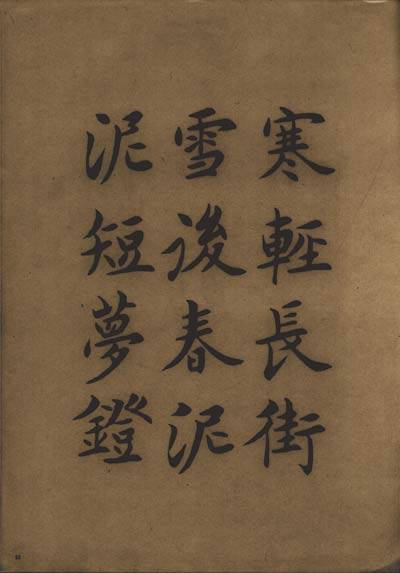 寒輕長街
雪後春泥
泥短夢鐙